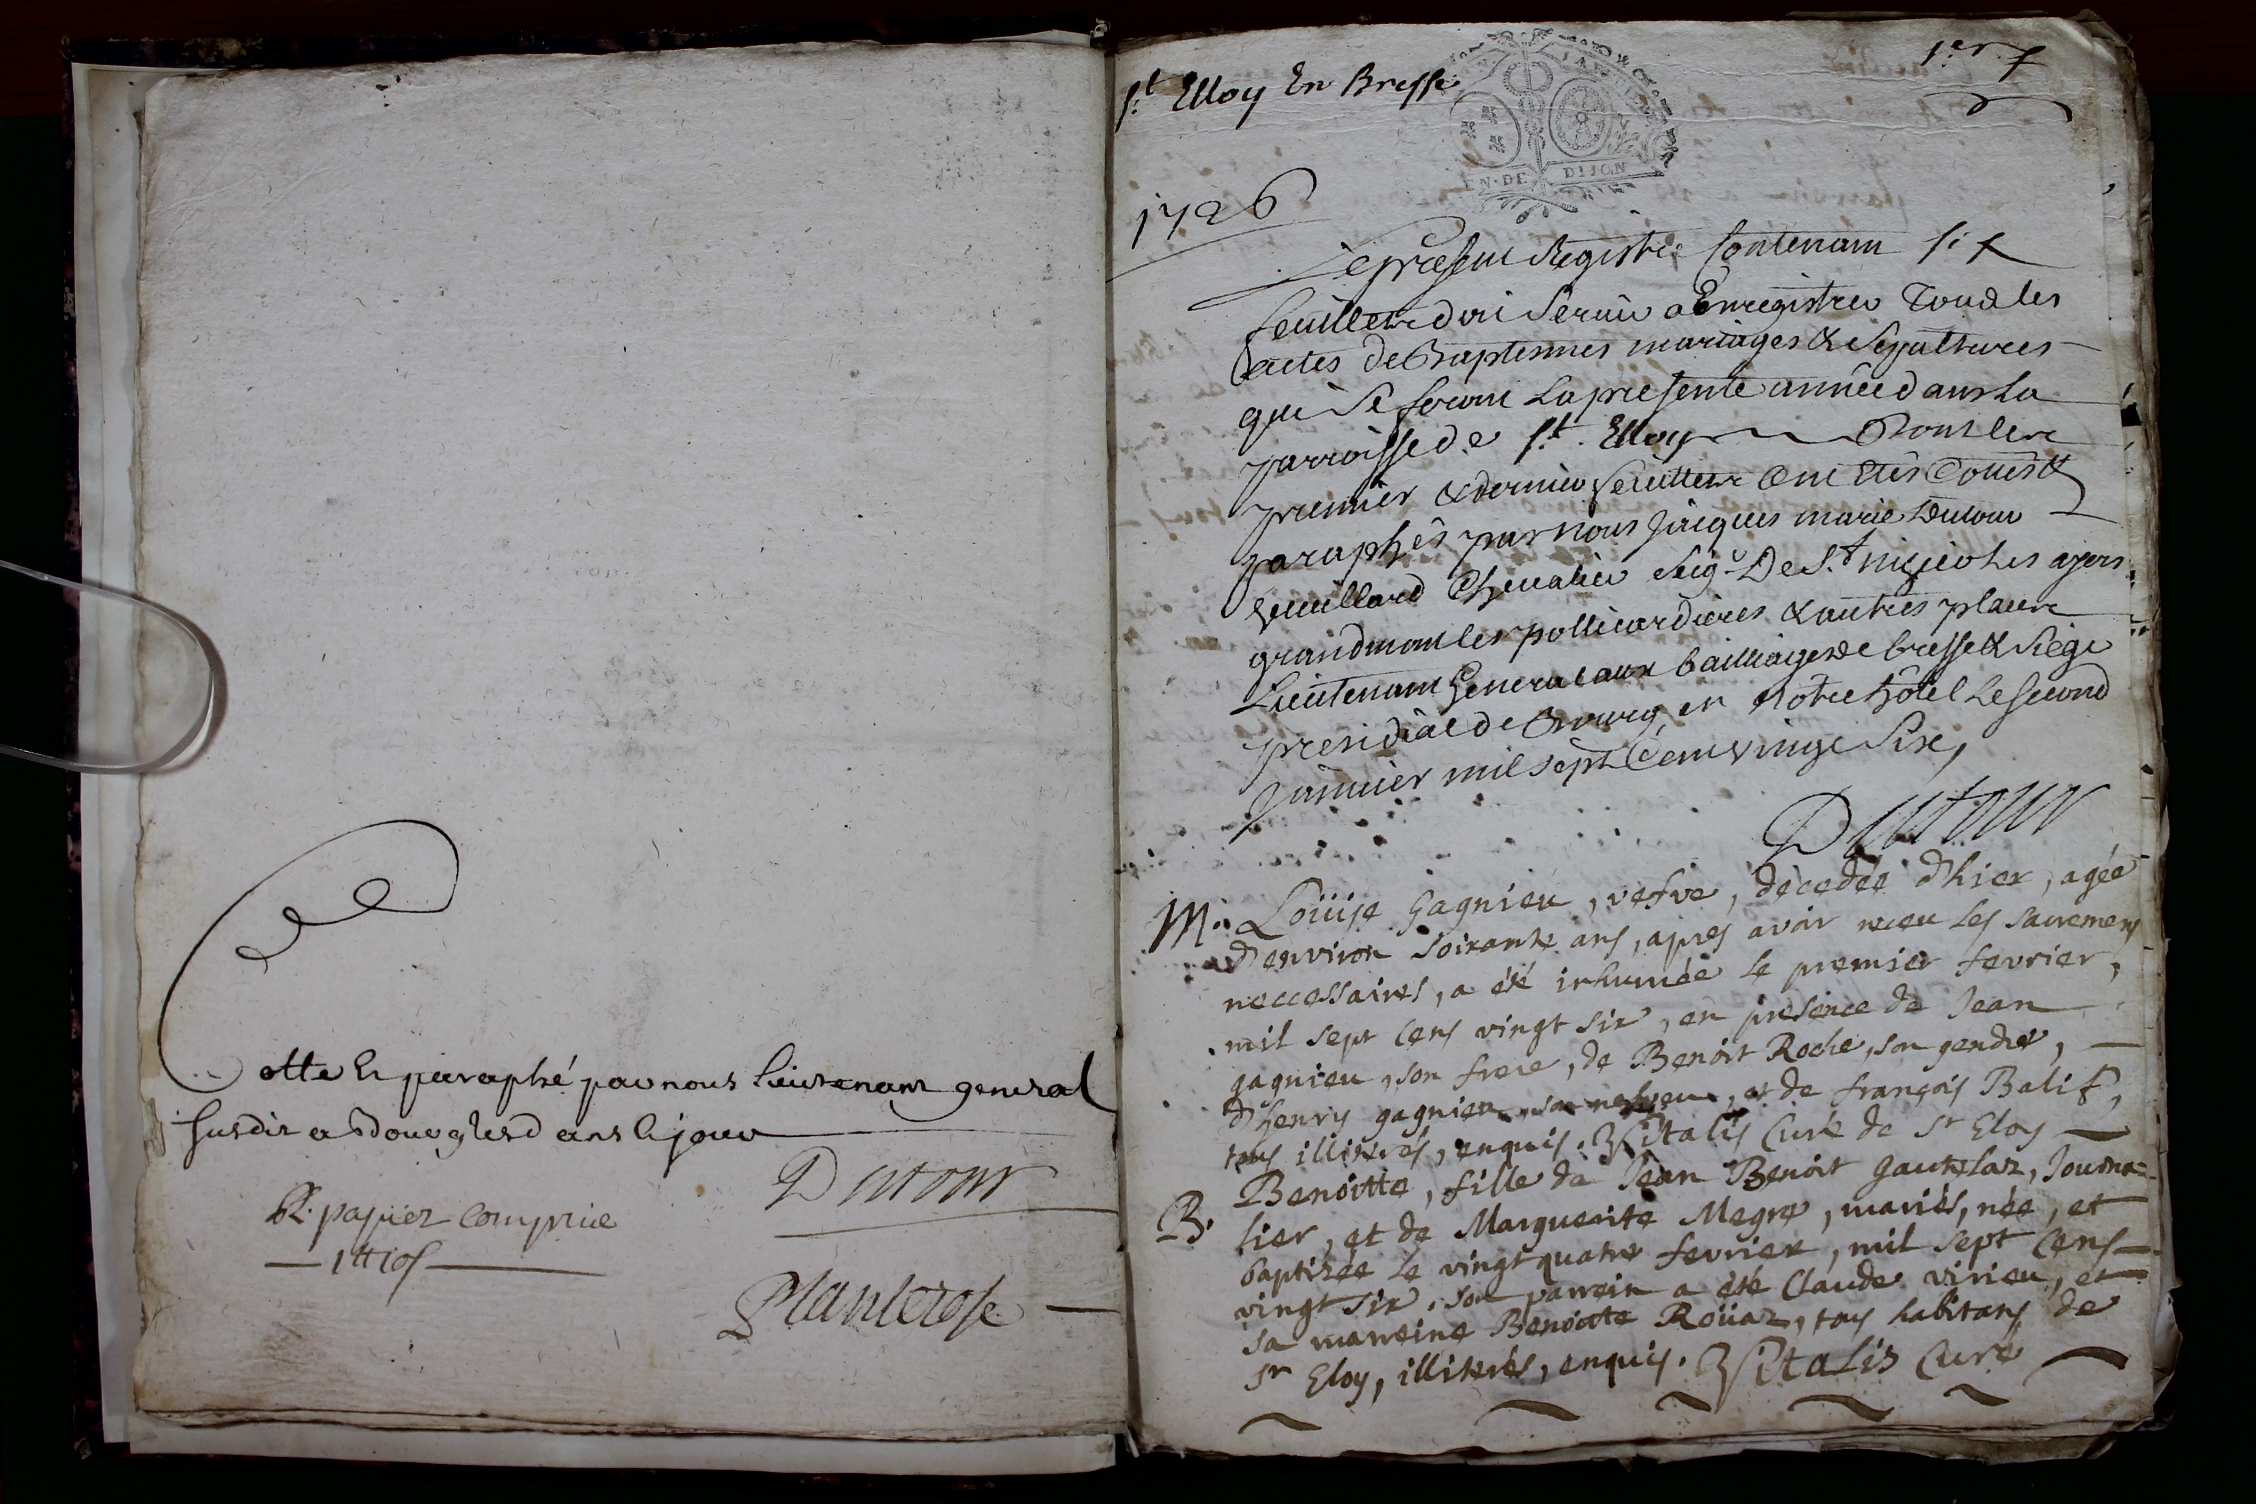 Cotte et paraphé par nous Lieutenant general
susdit a Bourg lesd ans et jour
Dutour
R. papier compris
1tt10s
Planterose
St Elloy En Bresse
1er f
EN DE DIJON
1726
Le present Registre Contenant six
feuillets doit servir a Enregistrer Tous les
actes de Baptesmes mariages & Sepultures
qui se feront la presente année dans la
parroisse de St. Elloy Dont les
premier & dernier feuillets ont etés Cottés &
paraphés par nous Jacques marie Dutour
Vuillard Chevalier seigr De St nizier les
grandmont les pollicardieres & autres places
Lieutenant General aux bailliage de bresse & siege
presidial de Bourg en notre hôtel le second
Janvier mil sept Cent vingt six,
Dutour
M. Loüise Gagnieu, vefve, décedée d'hier, agée
d'environ soixante ans, apres avoir receu les sacremens
neccessaires, a été inhumée le premier fevrier,
mil sept cens vingt six, en presence de Jean
gagnieu, son frere, de Benoit Roche, son gendre,
d'henry gagnieu, son nepveu, et de françois Balif,
tous illiterés, enquis. Vitalis Curé de St Eloy
B. Benoitte, fille de Jean Benoit Gauthelaz, Journa=
lier, et de Marguerite Megre, mariés, née, et
baptisée le vingt quatre fevrier, mil sept cens
vingt six, son parrein a été Claude virieu, et
sa marreine Benoitte Roüaz, tous habitans de
St Eloy, illiterés, enquis. Vitalis Curé